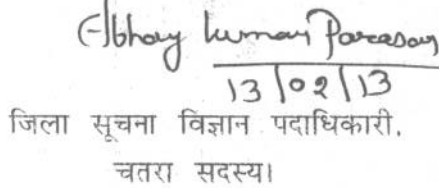 Abhay Kumar Parasar
13/02/13
जिला सूचना विज्ञान पदाधिकारी.
चतरा सदस्य।